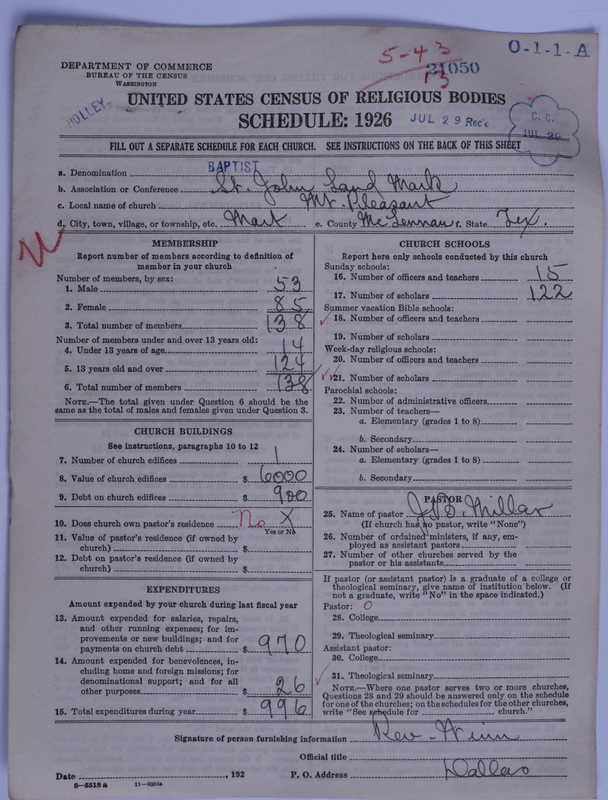 5-43
13
21050
O-1-1-A
DEPARTMENT OF COMMERCE
BUREAU OF THE CENSUS
WASHINGTON
HOLLEY
UNITED STATES CENSUS OF RELIGIOUS BODIES
SCHEDULE: 1926
JUL 29 Rec'd
C. C.
JUL 29
FILL OUT A SEPARATE SCHEDULE FOR EACH CHURCH. SEE INSTRUCTIONS ON THE BACK OF THIS SHEET
a. Denomination BAPTIST
b. Association or Conference St. John Land Mark
c. Local name of church Mt. Pleasant
d. City, town, village, or township, etc. Mart e. County McLennan f. State Tex.
MEMBERSHIP
Report number of members according to definition of
member in your church
Number of members, by sex:
1. Male 53
2. Female 85
3. Total number of members 138
Number of members under and over 13 years old:
4. Under 13 years of age 14
5. 13 years old and over 124
6. Total number of members 138
NOTE.—The total given under Question 6 should be the
same as the total of males and females given under Question 3.
CHURCH BUILDINGS
See instructions, paragraphs 10 to 12
7. Number of church edifices 1
8. Value of church edifices $ 6000
9. Debt on church edifices $ 900
10. Does church own pastor's residence No X
Yes or No
11. Value of pastor's residence (if owned by
church) $
12. Debt on pastor's residence (if owned by
church) $
EXPENDITURES
Amount expended by your church during last fiscal year
13. Amount expended for salaries, repairs,
and other running expenses; for im-
provements or new buildings; and for
payments on church debt $ 970
14. Amount expended for benevolences, in-
cluding home and foreign missions; for
denominational support; and for all
other purposes $ 26
15. Total expenditures during year $ 996
CHURCH SCHOOLS
Report here only schools conducted by this church
Sunday schools:
16. Number of officers and teachers 15
17. Number of scholars 122
Summer vacation Bible schools:
18. Number of officers and teachers
19. Number of scholars
Week-day religious schools:
20. Number of officers and teachers
21. Number of scholars
Parochial schools:
22. Number of administrative officers
23. Number of teachers—
a. Elementary (grades 1 to 8)
b. Secondary
24. Number of scholars—
a. Elementary (grades 1 to 8)
b. Secondary
PASTOR
25. Name of pastor Millar
(If church has no pastor, write "None")
26. Number of ordained ministers, if any, em-
ployed as assistant pastors
27. Number of other churches served by the
pastor or his assistants
If pastor (or assistant pastor) is a graduate of a college or
theological seminary, give name of institution below. (If
not a graduate, write "No" in the space indicated.)
Pastor: 0
28. College
29. Theological seminary
Assistant pastor:
30. College
31. Theological seminary
NOTE.—Where one pastor serves two or more churches,
Questions 28 and 29 should be answered only on the schedule
for one of the churches; on the schedules for the other churches,
write "See schedule for church."
Signature of person furnishing information Rev. Winn
Official title
Date , 192 P. O. Address Dallas
8-5518a 11-9034a